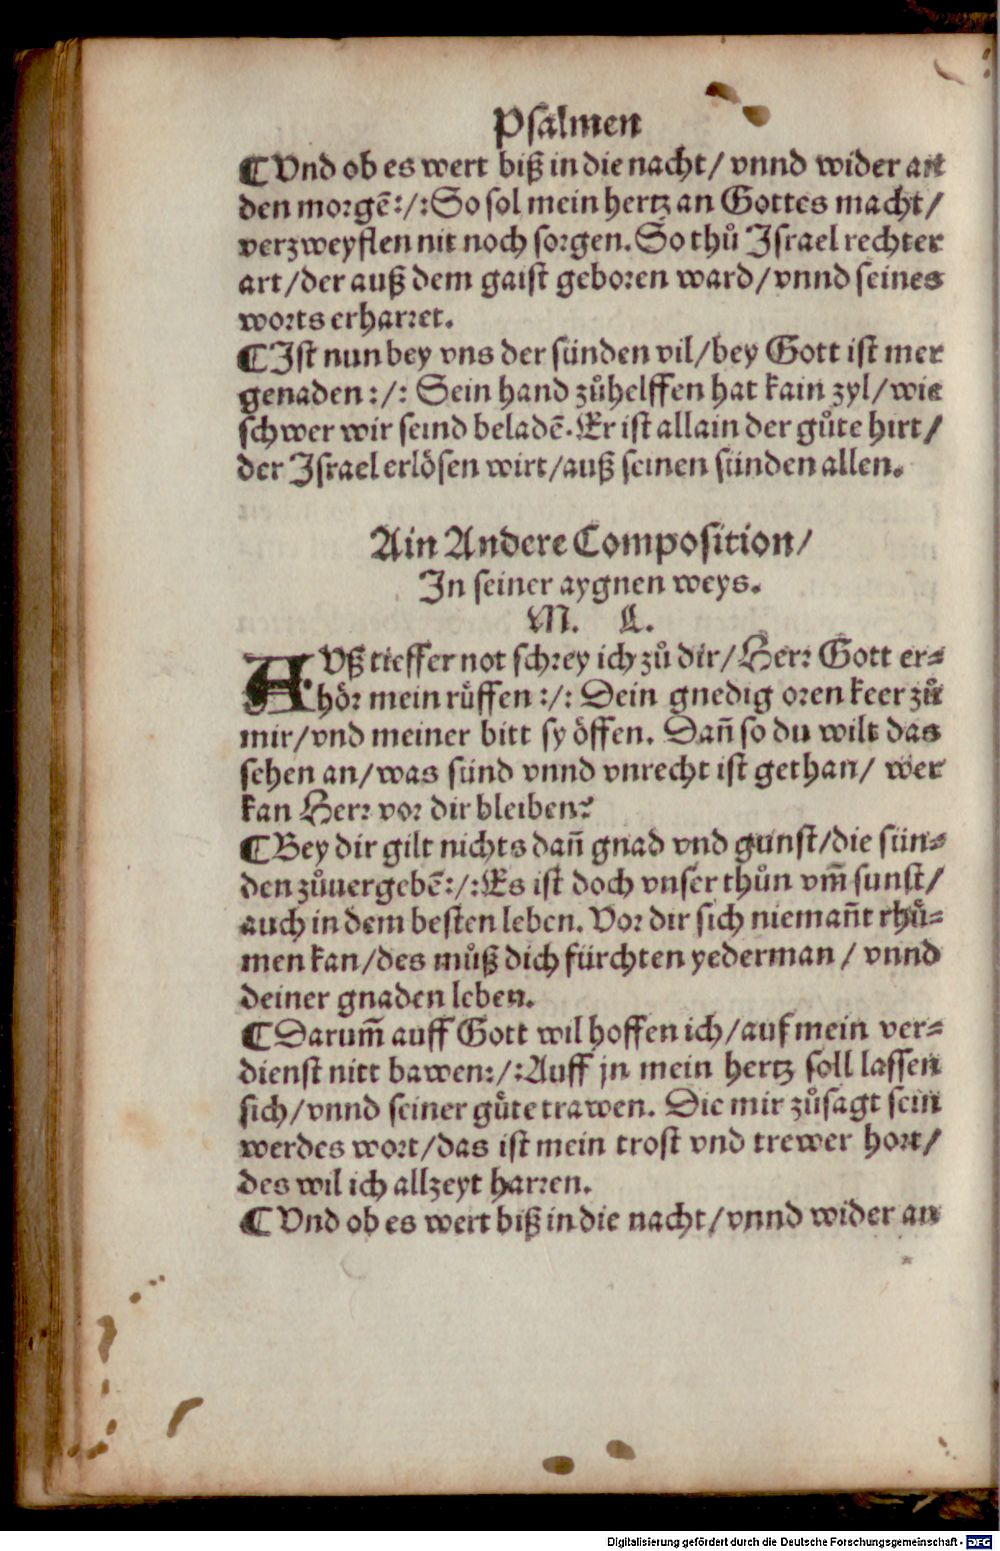 Psalmen
¶ Vnd ob es wert biß in die nacht / vnnd wider an
den morgē :/: So sol mein hertz an Gottes macht /
verzweyflen nit noch sorgen. So thů Israel rechter
art / der auß dem gaist geboren ward / vnnd seines
worts erharret.
¶ Ist nun bey vns der sünden vil / bey Gott ist mer
genaden :/: Sein hand zůhelffen hat kain zyl / wie
schwer wir seind beladē. Er ist allain der gůte hirt /
der Israel erlösen wirt / auß seinen sünden allen.
Ain Andere Composition /
In seiner aygnen weys.
M. L.
AVß tieffer not schrey ich zů dir / Herr Gott er⸗
hör mein rüffen :/: Dein gnedig oren keer zů
mir / vnd meiner bitt sy öffen. Dañ so du wilt das
sehen an / was sünd vnnd vnrecht ist gethan / wer
kan Herr vor dir bleiben?
¶ Bey dir gilt nichts dañ gnad vnd gunst / die sün⸗
den zůuergebē :/: Es ist doch vnser thůn vm̄ sunst /
auch in dem besten leben. Vor dir sich niemañt rhů⸗
men kan / des můß dich fürchten yederman / vnnd
deiner gnaden leben.
¶ Darum̄ auff Gott wil hoffen ich / auf mein ver⸗
dienst nitt bawen :/: Auff jn mein hertz soll lassen
sich / vnnd seiner gůte trawen. Die mir zůsagt sein
werdes wort / das ist mein trost vnd trewer hort /
des wil ich allzeyt harren.
¶ Vnd ob es wert biß in die nacht / vnnd wider an
Digitalisierung gefördert durch die Deutsche Forschungsgemeinschaft - DFG